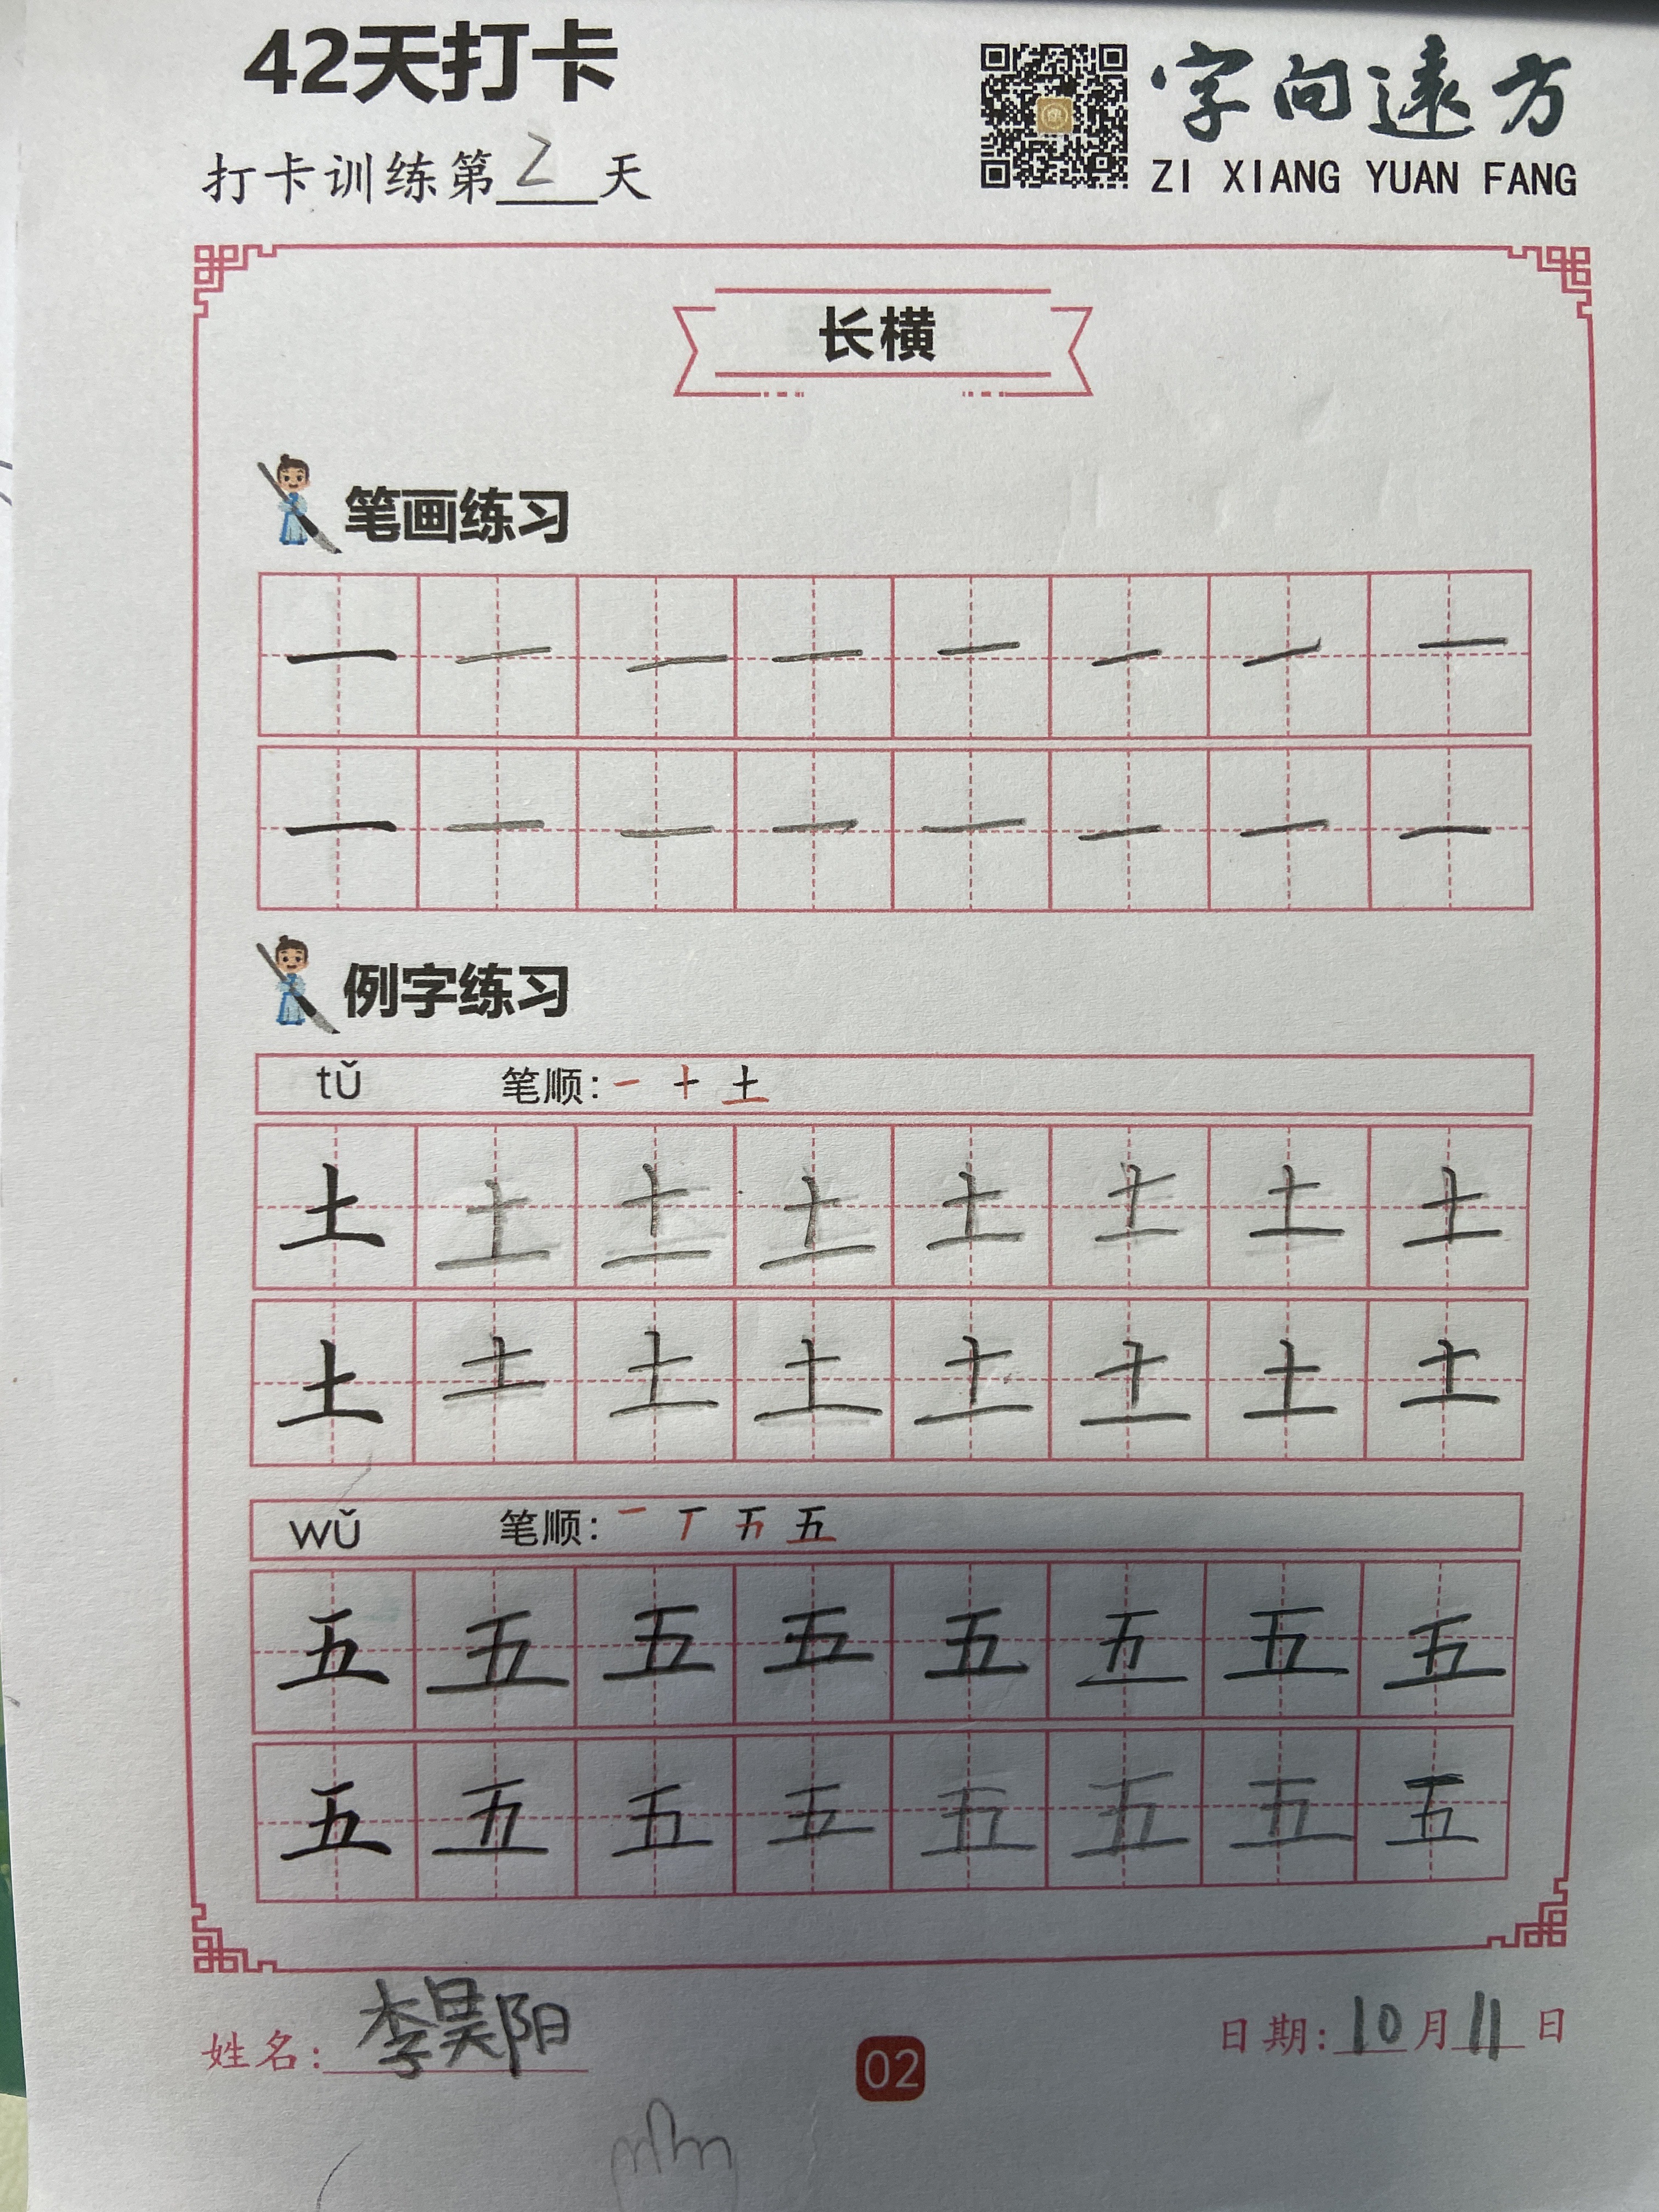 42天打卡
字向遠方
打卡训练第2天
ZI XIANG YUAN FANG
长横
笔画练习
一 一 一 一 一 一 一 一
一 一 一 一 一 一 一 一
例字练习
tǔ 笔顺：一 十 土
土 土 土 土 土 土 土 土
土 土 土 土 土 土 土 土
wǔ 笔顺：一 丅 五 五
五 五 五 五 五 五 五 五
五 五 五 五 五 五 五 五
姓名：李昊阳
02
日期：10月11日